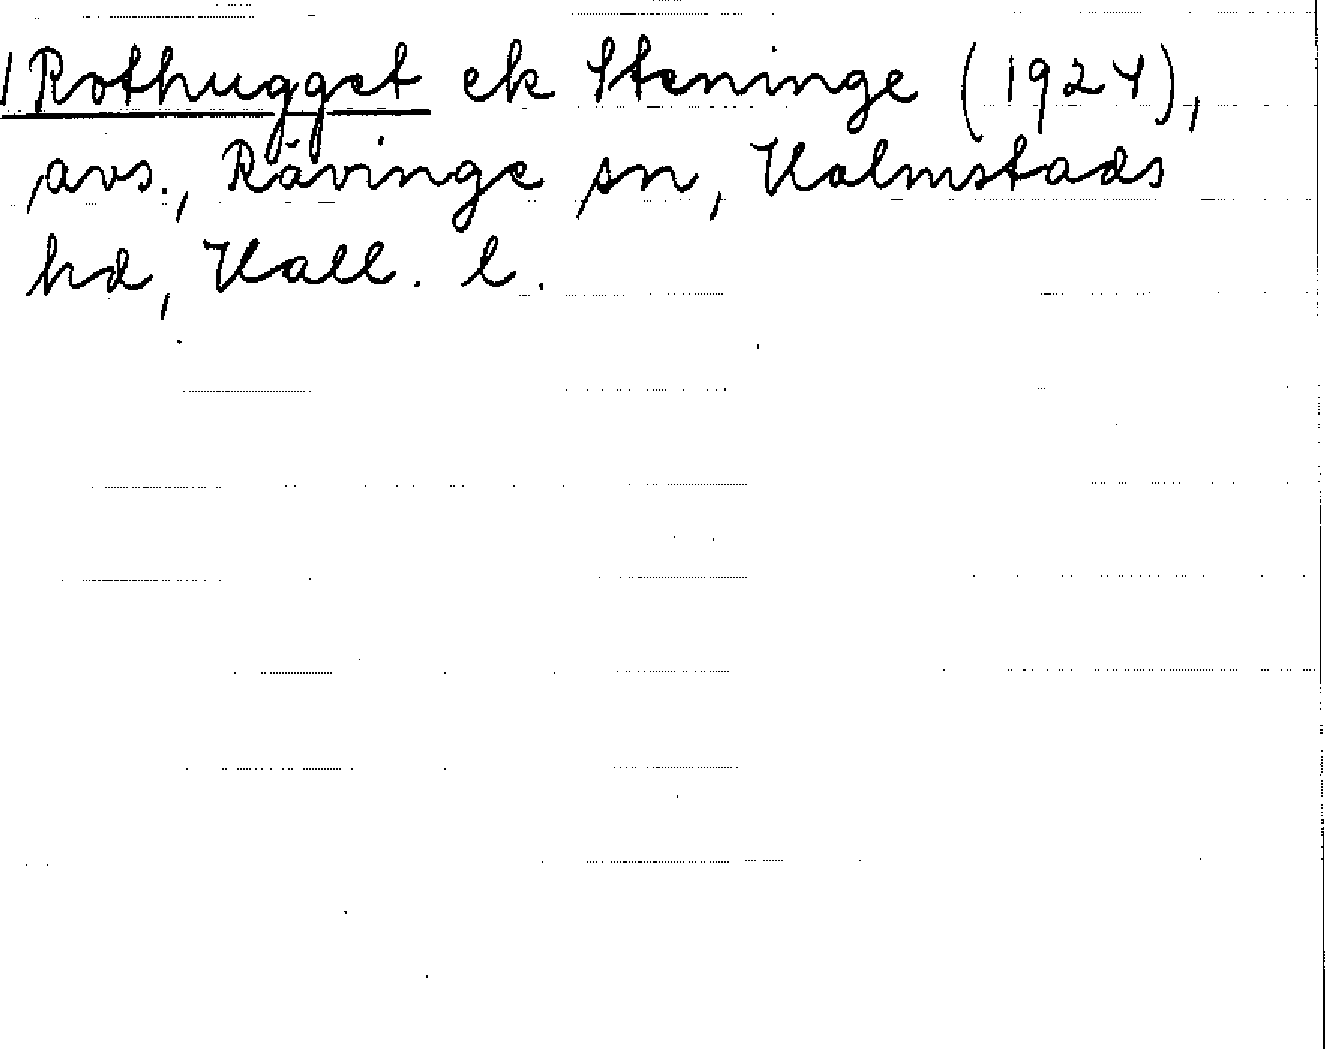 Rothugget ek Steninge (1924),
avs., Rävinge sn, Halmstads
hd, Hall. l.